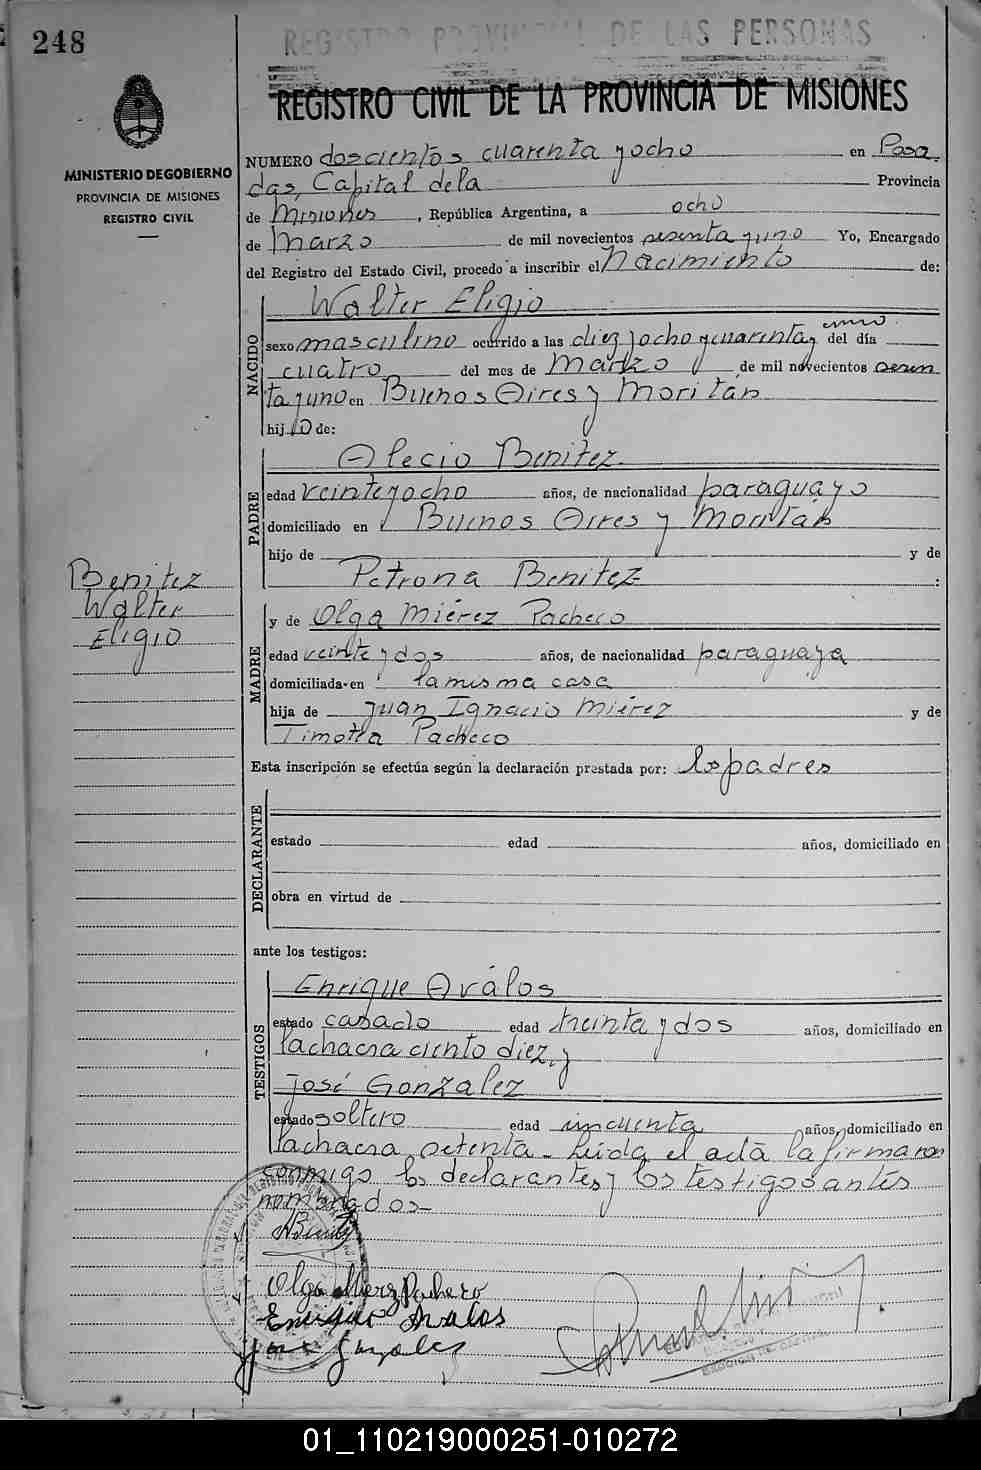 248
REGISTRO PROVINCIAL DE LAS PERSONAS
REGISTRO CIVIL DE LA PROVINCIA DE MISIONES
MINISTERIO DE GOBIERNO
PROVINCIA DE MISIONES
REGISTRO CIVIL
NUMERO doscientos cuarenta y ocho en Posa.
das, Capital de la Provincia
de Misiones, República Argentina, a ocho
de Marzo de mil novecientos sesenta y uno Yo, Encargado
del Registro del Estado Civil, procedo a inscribir el Nacimiento de:
NACIDO
Walter Eligio
sexo masculino ocurrido a las diez y ocho y cuarenta y cinco del día
cuatro del mes de Marzo de mil novecientos sesen
ta y uno en Buenos Aires y Moritán
hijo de:
PADRE
Alecio Benitez
edad veinte y ocho años, de nacionalidad paraguayo
domiciliado en Buenos Aires y Moritán
hijo de y de
Petrona Benitez :
Benitez
Walter
Eligio
MADRE
y de Olga Miérez Pacheco
edad veinte y dos años, de nacionalidad paraguaya
domiciliada en la misma casa
hija de Juan Ignacio Miérez y de
Timotea Pacheco
Esta inscripción se efectúa según la declaración prestada por: los padres
DECLARANTE
estado edad años, domiciliado en
obra en virtud de
ante los testigos:
TESTIGOS
Enrique Aválos
estado casado edad treinta y dos años, domiciliado en
la chacra ciento diez, y
José González
estado soltero edad cincuenta años, domiciliado en
la chacra setenta - Leída el acta la firmaron
conmigo los declarantes y los testigos antes
nombrados -
ABenitez
Olga Mierez Pacheco
Enrique Avalos
Jose Gonzalez
01_110219000251-010272